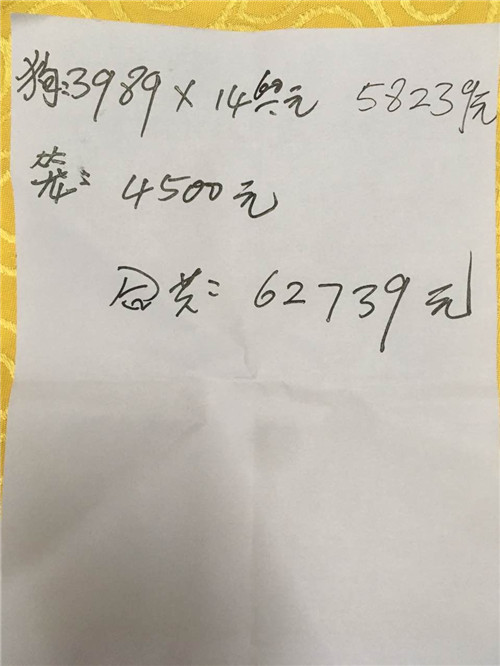 狗:3989×14.6元 58239元
笼:4500元
总共:62739元